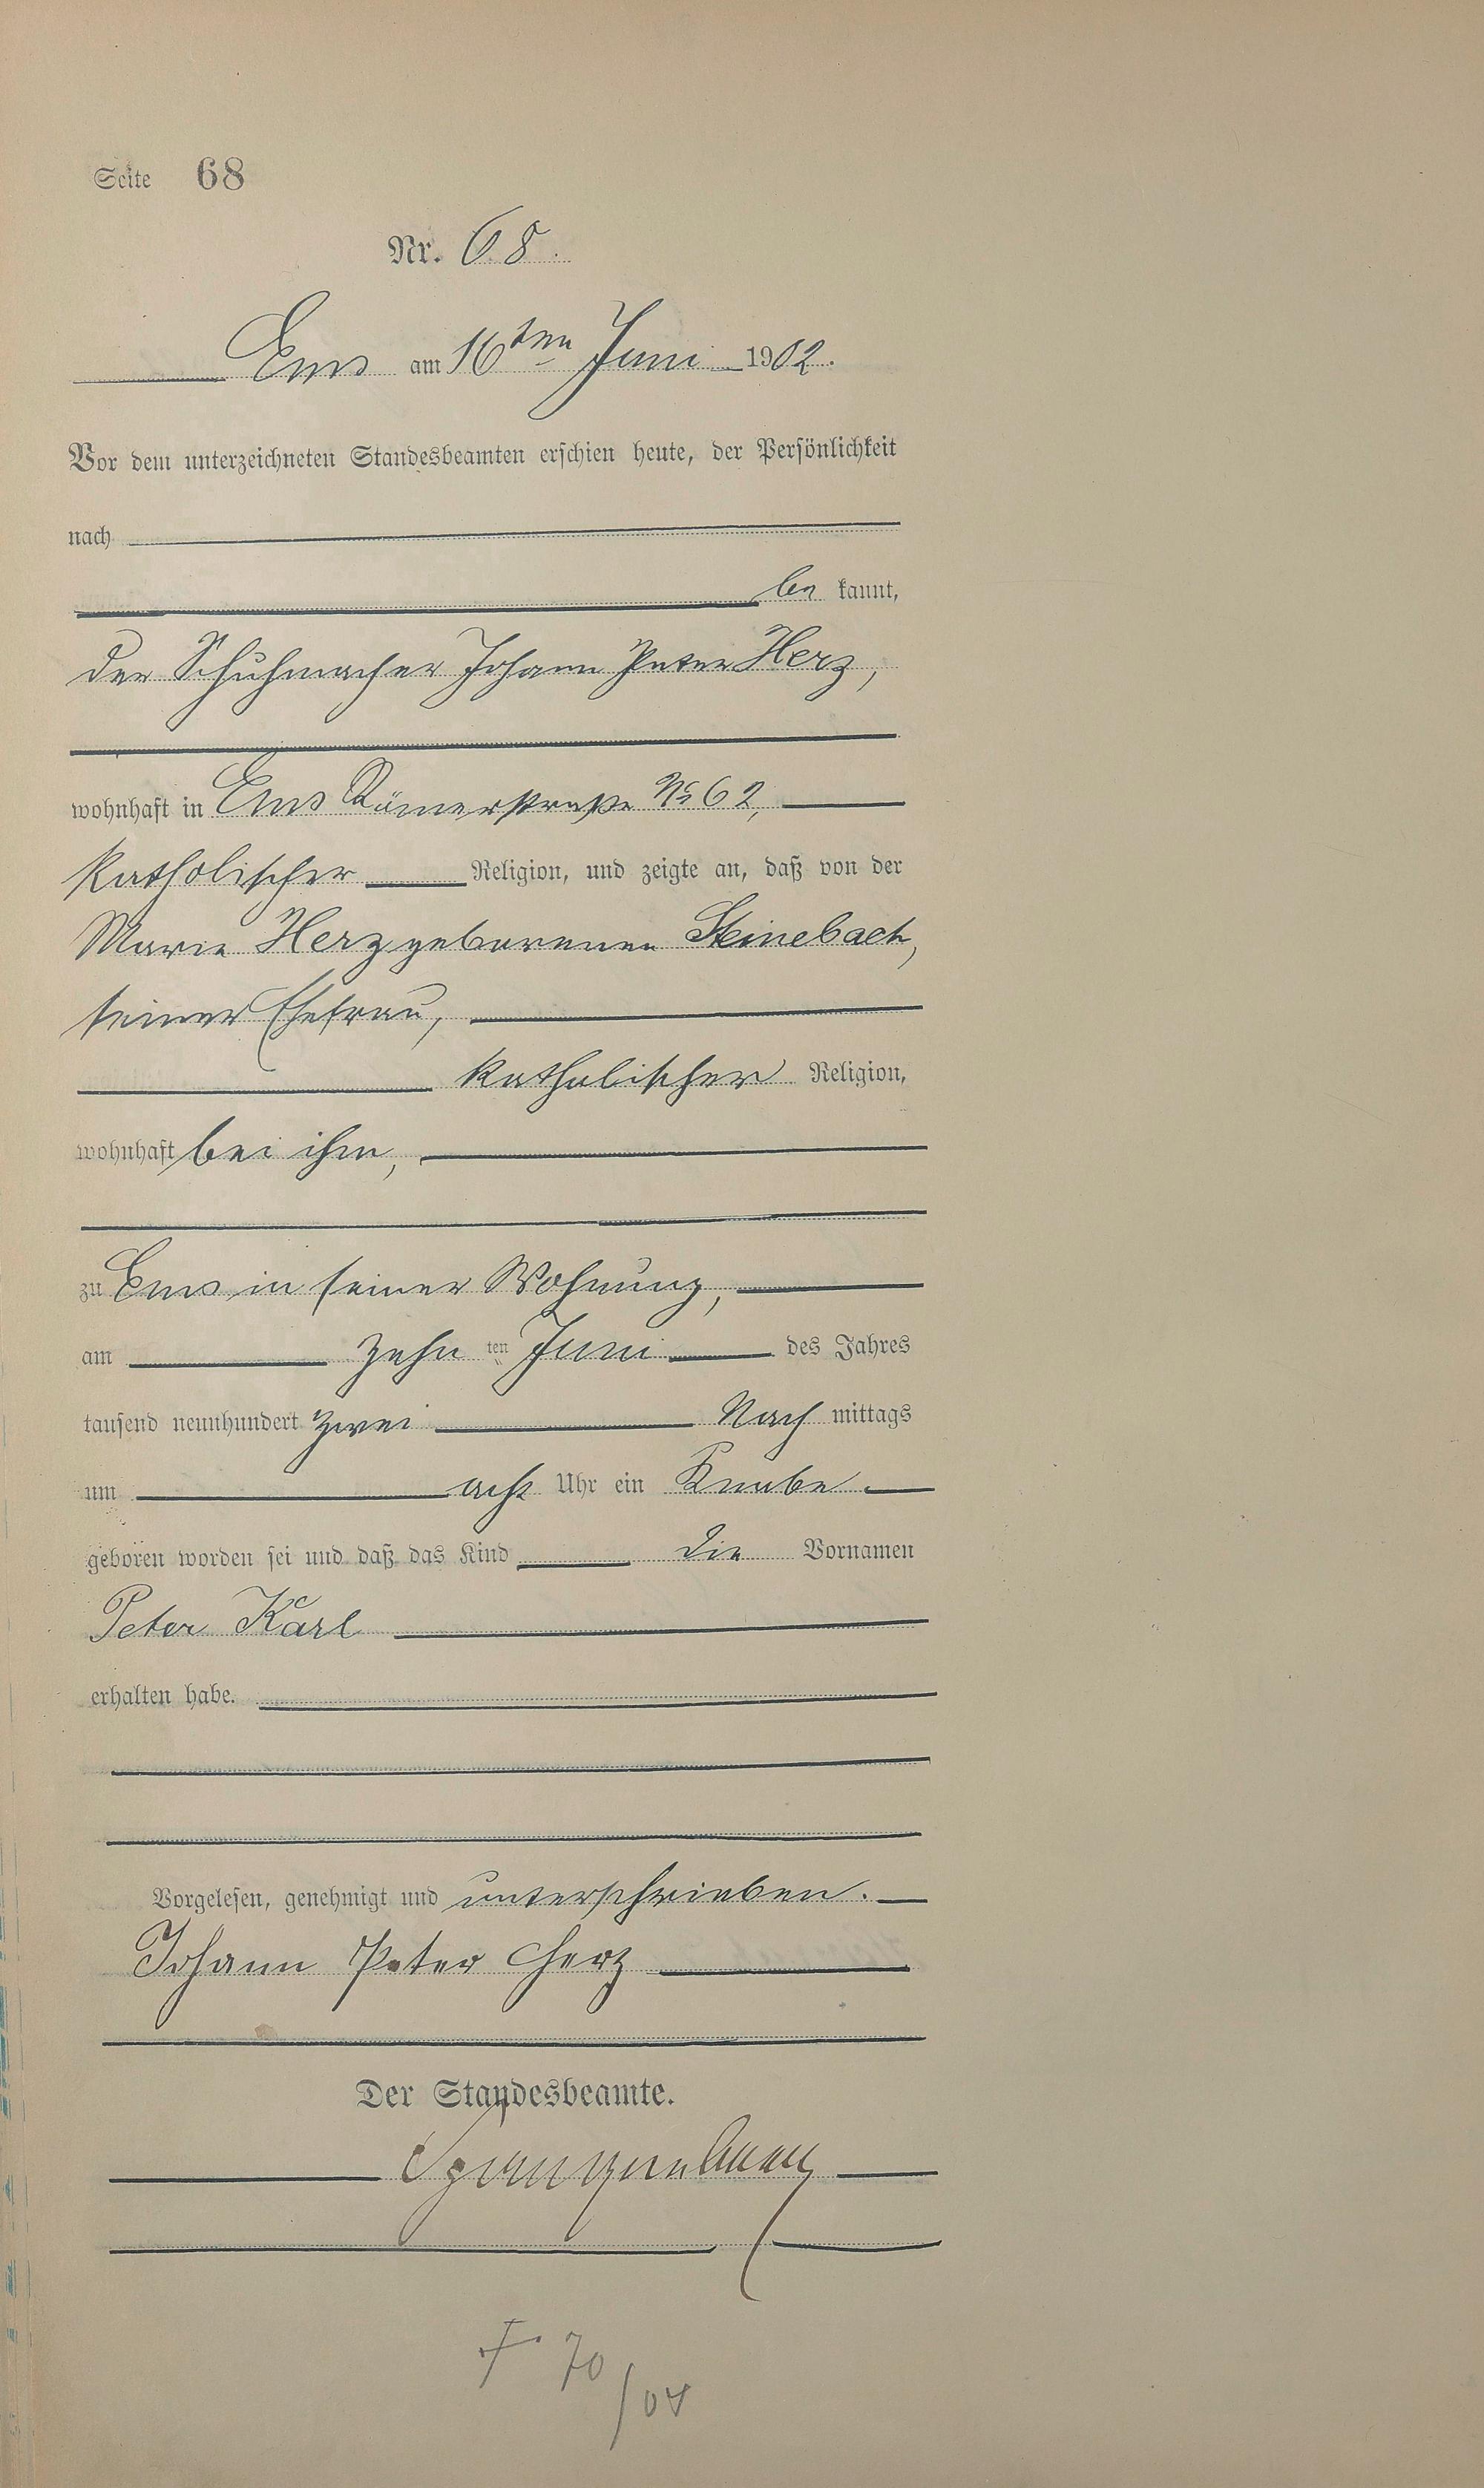 Seite 68
Nr. 68.
Ems am 16ten Juni 1902.
Vor dem unterzeichneten Standesbeamten erschien heute, der Persönlichkeit
nach
be kannt,
der Schuhmacher Johann Peter Herz,
wohnhaft in Ems Römerstraße № 62,
katholischer Religion, und zeigte an, daß von der
Marie Herz geborenen Steinebach,
seiner Ehefrau,
katholischer Religion,
wohnhaft bei ihm,
zu Ems in seiner Wohnung,
am zehn ten Juni des Jahres
tausend neunhundert zwei Nach mittags
um acht Uhr ein Knabe
geboren worden sei und daß das Kind die Vornamen
Peter Karl
erhalten habe.
Vorgelesen, genehmigt und unterschrieben.
Johann Peter Herz
Der Standesbeamte.
† 70/04